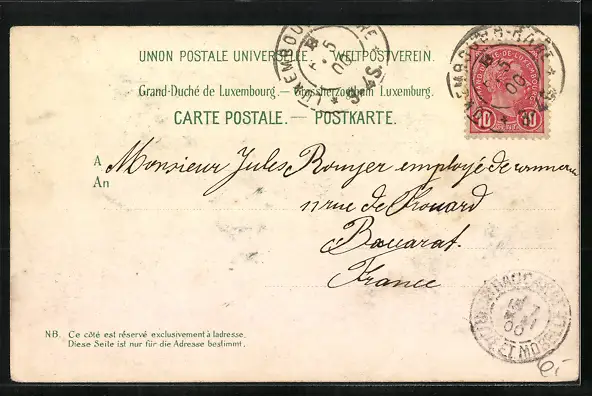 UNION POSTALE UNIVERSELLE. — WELTPOSTVEREIN.
Grand-Duché de Luxembourg. — Grossherzogthum Luxemburg.
CARTE POSTALE. — POSTKARTE.
10 10
A
An
Monsieur Jules Rouyer employé de commerce
11 rue de Frouard
Baccarat.
France
BACCARAT
MEURTHE ET MOSELLE
NB. Ce côté est réservé exclusivement à ladresse.
Diese Seite ist nur für die Adresse bestimmt.